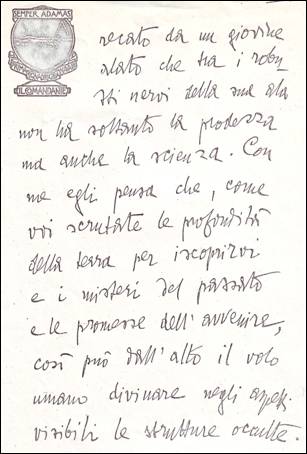 SEMPER ADAMAS
IL COMANDANTE
recato da un giovine
alato che tra i robu
sti nervi della sua ala
non ha soltanto la prodezza
ma anche la scienza. Con
me egli pensa che, come
voi scrutate le profondità
della terra per iscoprirvi
e i misteri del passato
e le promesse dell'avvenire,
così può dall'alto il volo
umano divinare negli aspet
visibili le strutture occulte.